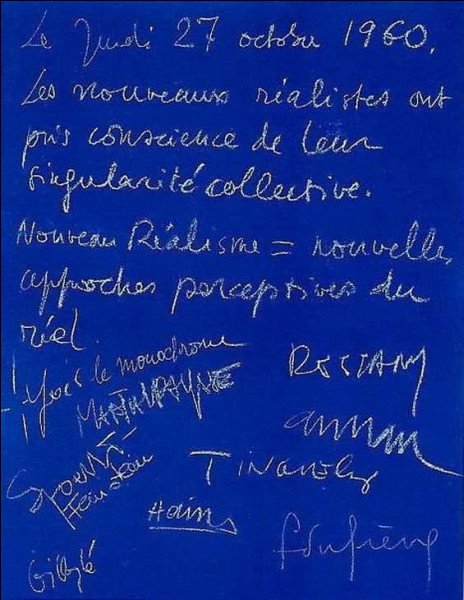 Le Jeudi 27 octobre 1960.
Les nouveaux réalistes ont
pris conscience de leur
singularité collective.
Nouveau Réalisme = nouvelles
approches perceptives du
réel.
Yves le monochrome
RESTANY
MARTIAL RAYSSE
arman
SPOERRI
Feinstein
TINGUELY
Hains
dufrêne
Villeglé